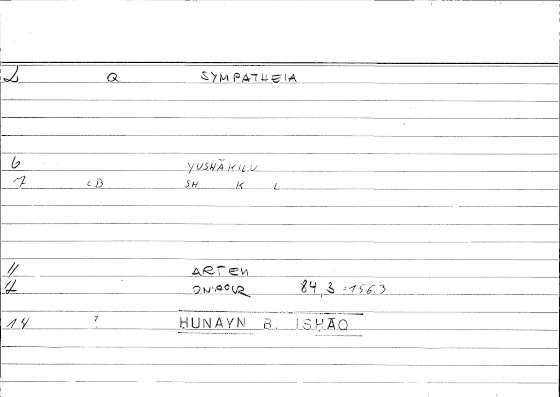 2 Q SYMPATHEIA
6 YUSHĀKILU
7 CB SH K L
11 ARTEM
84,3 = 156.3
14 ? HUNAYN B. ISHĀQ